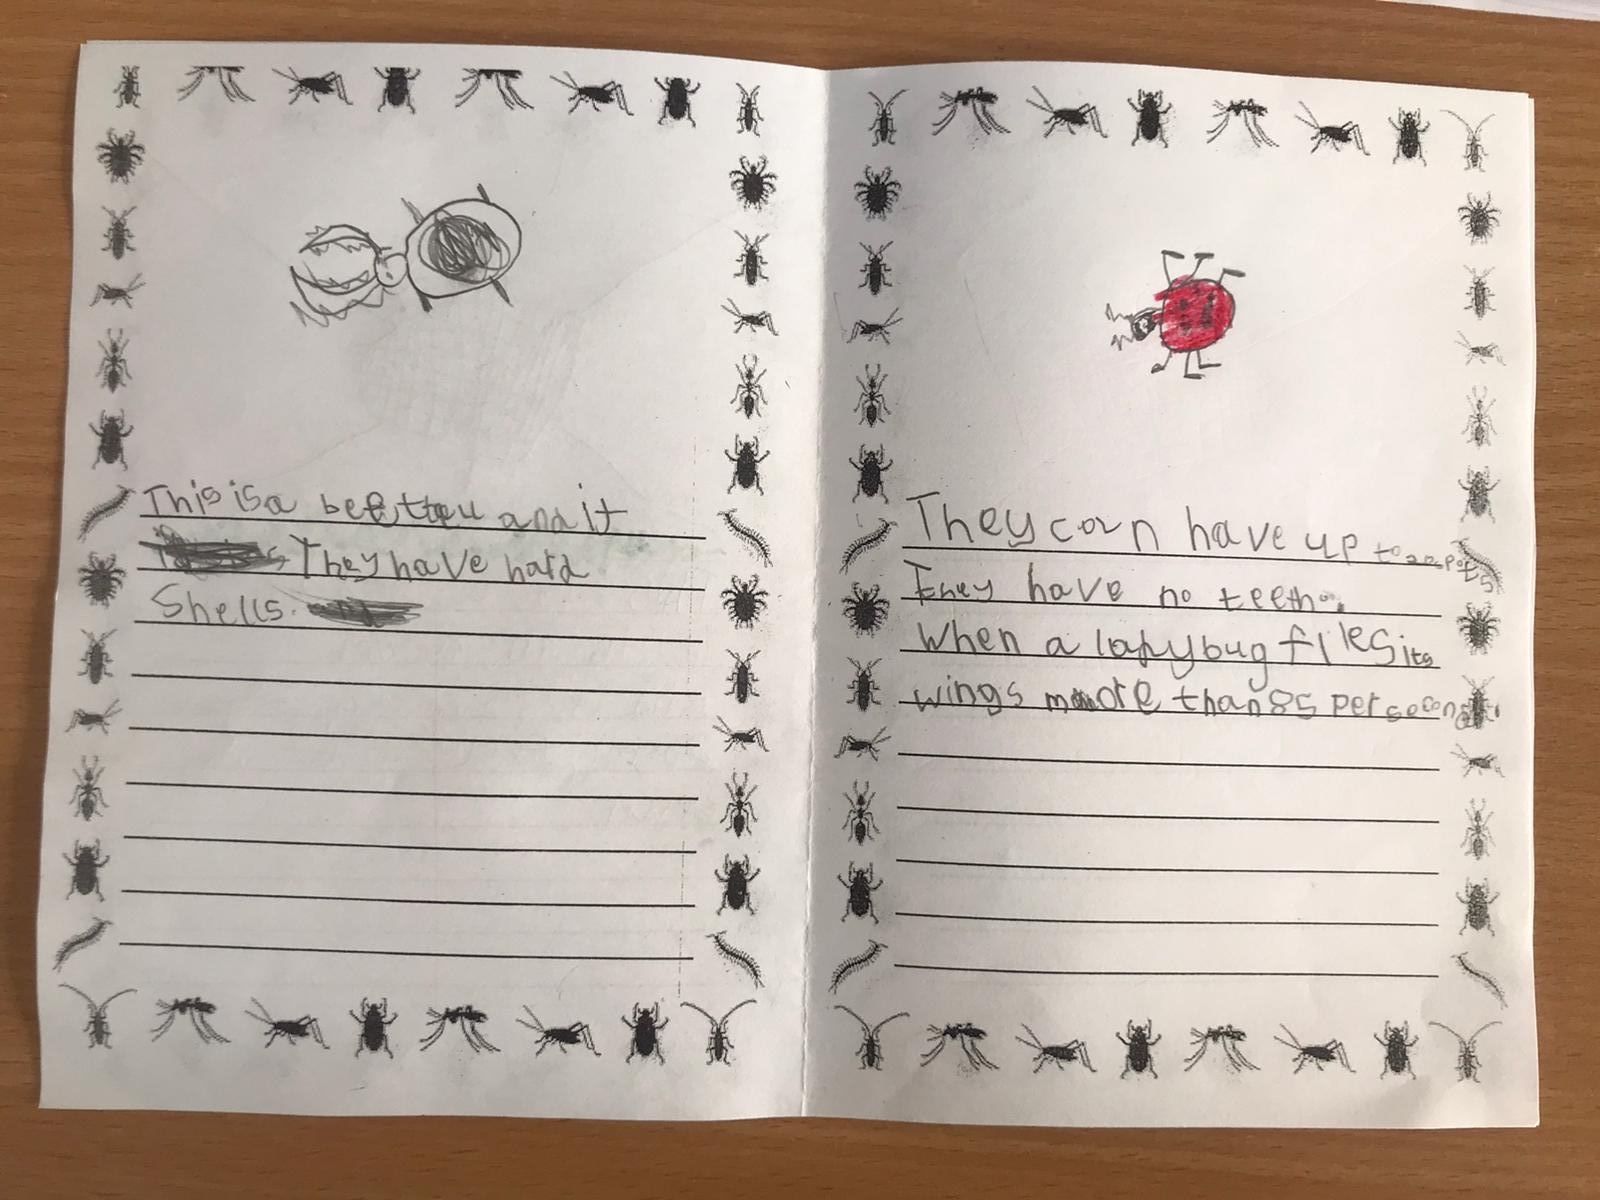 This is a beetteu and it
They have hard
Shells.
They can have up to 20 spots
They have no teeth.
When a ladybug flies its
wings more than 85 per second